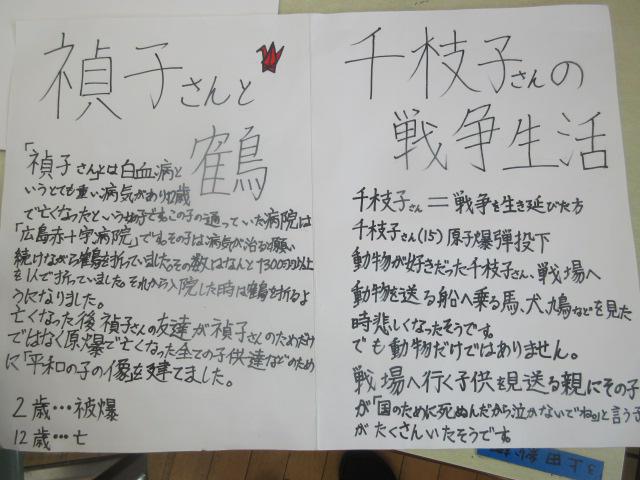 禎子さんと
鶴
「禎子さん」とは白血病と
いうとても重い病気があり12歳
で亡くなったという女の子です。この子の通っていた病院は
「広島赤十字病院」です。その子は病気が治る願い
続けながら鶴を折っていました。その数はなんと1300羽以上
を1人で折っていました。それから入院した時は鶴を折るよ
うになりました。
亡くなった後禎子さんの友達が禎子さんのためだけ
ではなく原爆で亡くなった全ての子供達などのため
に「平和の子の像」を建てました。
2歳…被爆
12歳…亡
千枝子さんの
戦争生活
千枝子さん=戦争を生き延びた方
千枝子さん(15)原子爆弾投下
動物が好きだった千枝子さん、戦場へ
動物を送る船へ乗る馬、犬、鳩などを見た
時悲しくなったそうです。
でも動物だけではありません。
戦場へ行く子供を見送る親にその子
が「国のために死ぬんだから泣かないでね。」と言う子
がたくさんいたそうです。
3上田